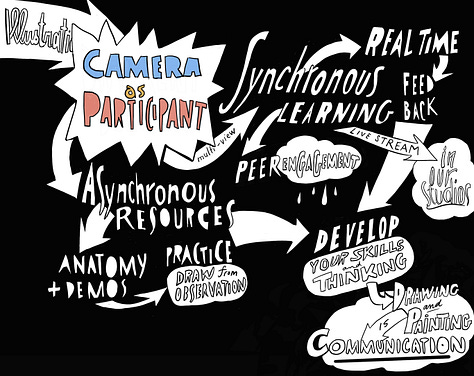 Illustrati
CAMERA
as
PARTICIPANT
Synchronous
LEARNING
REAL TIME
FEED
BACK
multi-view
LIVE STREAM
in
our
Studios
PEER ENGAGEMENT
ASynchronous
RESOURCES
ANATOMY
+ DEMOS
PRACTICE
DRAW from
OBSERVATION
DEVELOP
YOUR SKILLS
and
THINKING
DRAWING
and
PAINTING
IS
COMMUNICATION